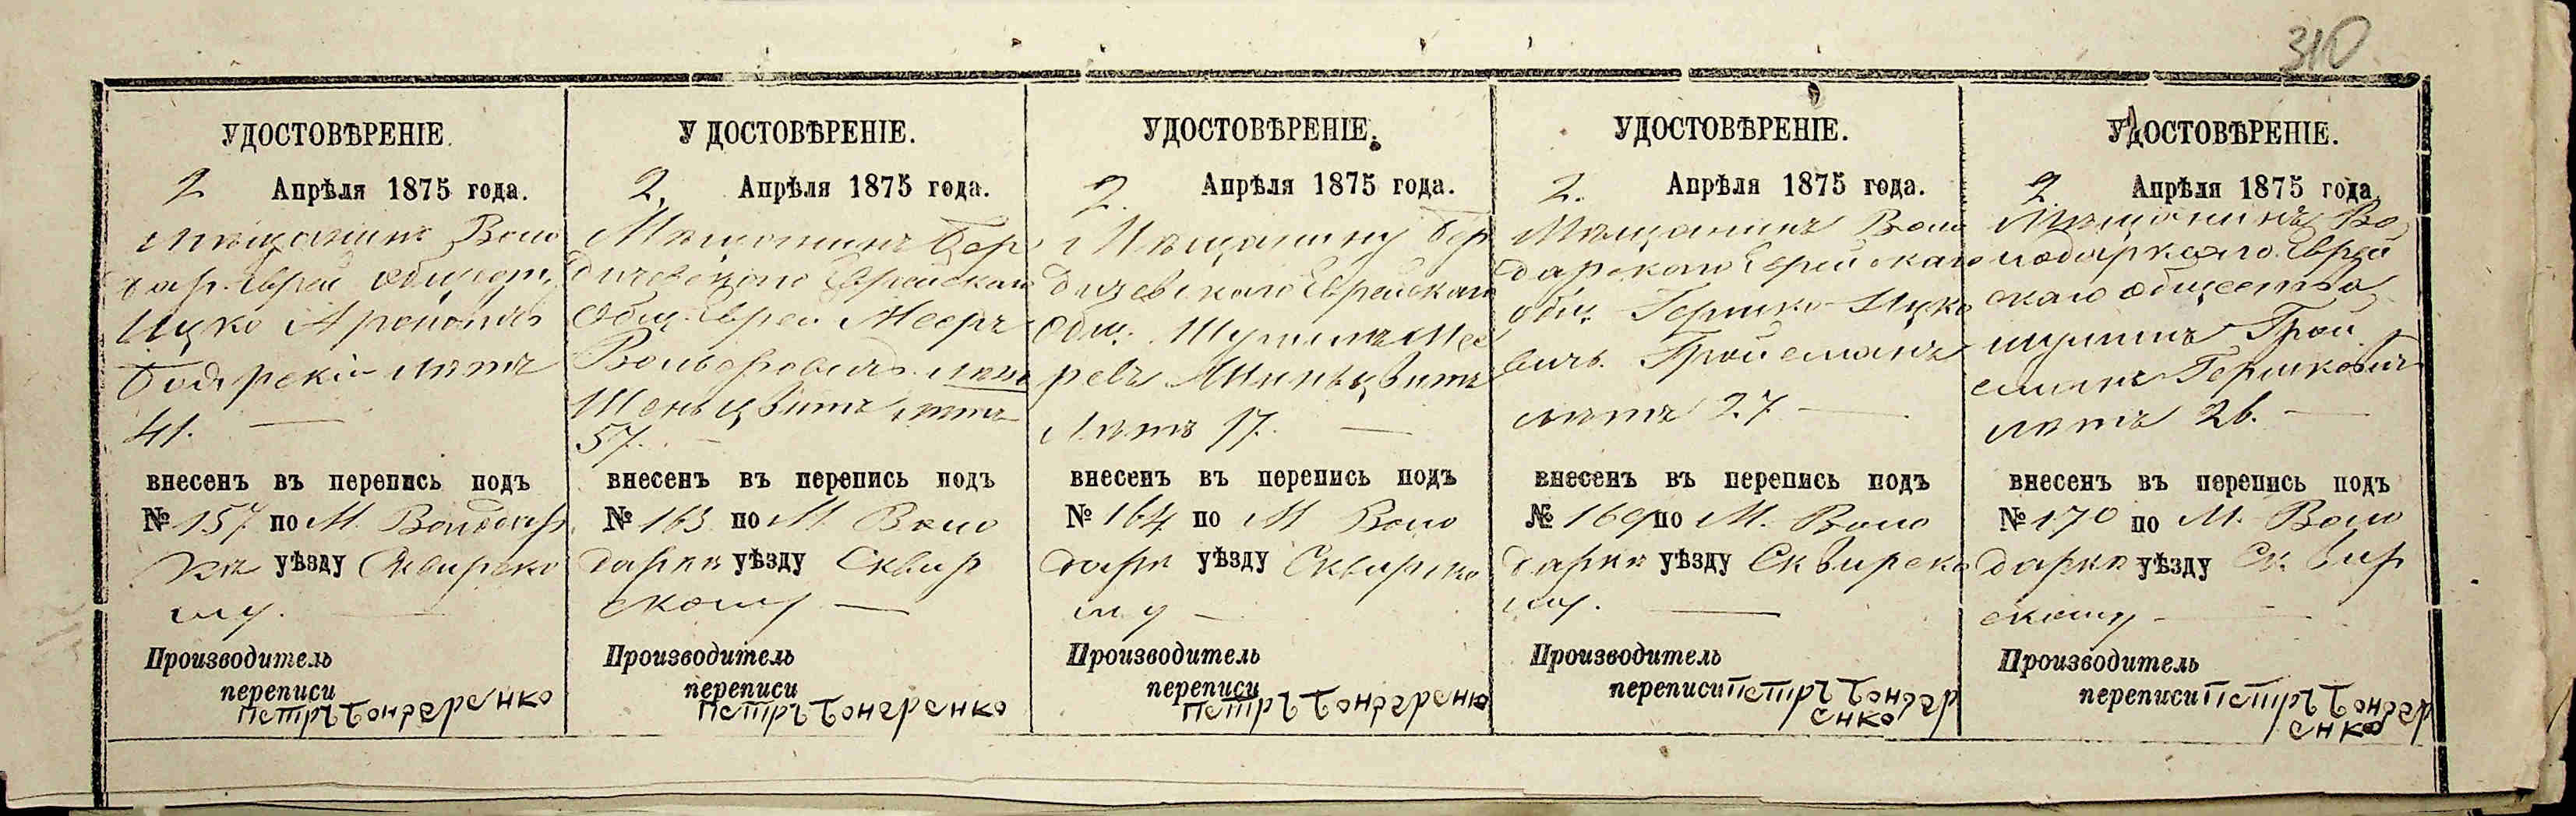 310
УДОСТОВѢРЕНІЕ.
2 Апрѣля 1875 года.
Мѣщанинъ Воло
дар. Еврей общест.
Ицко Ароновъ
Боярскій лѣтъ
41. —
внесенъ въ перепись подъ
№ 157 по М. Володар
кѣ уѣзду Сквирско
му. —
Производитель
переписи
Петръ Бондаренко
У ДОСТОВѢРЕНІЕ.
2. Апрѣля 1875 года.
Мѣщанинъ Бер
дичевскаго Еврейскаго
Общ. Еврей Мееръ
Вольфовичъ
Шеньцвитъ лѣтъ
57. —
внесенъ въ перепись подъ
№ 163 по М. Воло
даркѣ уѣзду Сквир
скому —
Производитель
переписи
Петръ Бонаренко
УДОСТОВѢРЕНІЕ.
2. Апрѣля 1875 года.
Мѣщанину Бер
дичевскаго Еврейскаго
Общ. Шулимъ Мее
ревъ
Лѣтъ 17. —
внесенъ въ перепись подъ
№ 164 по М Воло
даркѣ уѣзду Сквирско
му —
Производитель
переписи
Петръ Бондаренко
УДОСТОВѢРЕНІЕ.
2. Апрѣля 1875 года.
Мѣщанинъ Воло
дарскаго Еврейскаго
общ. Гершко Ицко
вичъ Гройсманъ
лѣтъ 27 —
внесенъ въ перепись подъ
№ 169 по М. Воло
даркѣ уѣзду Сквирско
му. —
Производитель
переписи Петръ Бондар
енко
УДОСТОВѢРЕНІЕ.
2 Апрѣля 1875 года
Мѣщанинъ Во
лодарскаго Еврей
скаго общества
Шулимъ Грой
сманъ Гершковичъ
лѣтъ 26. —
внесенъ въ перепись подъ
№ 170 по М. Воло
даркѣ уѣзду Сквир
скому —
Производитель
переписи Петръ Бондар
енко